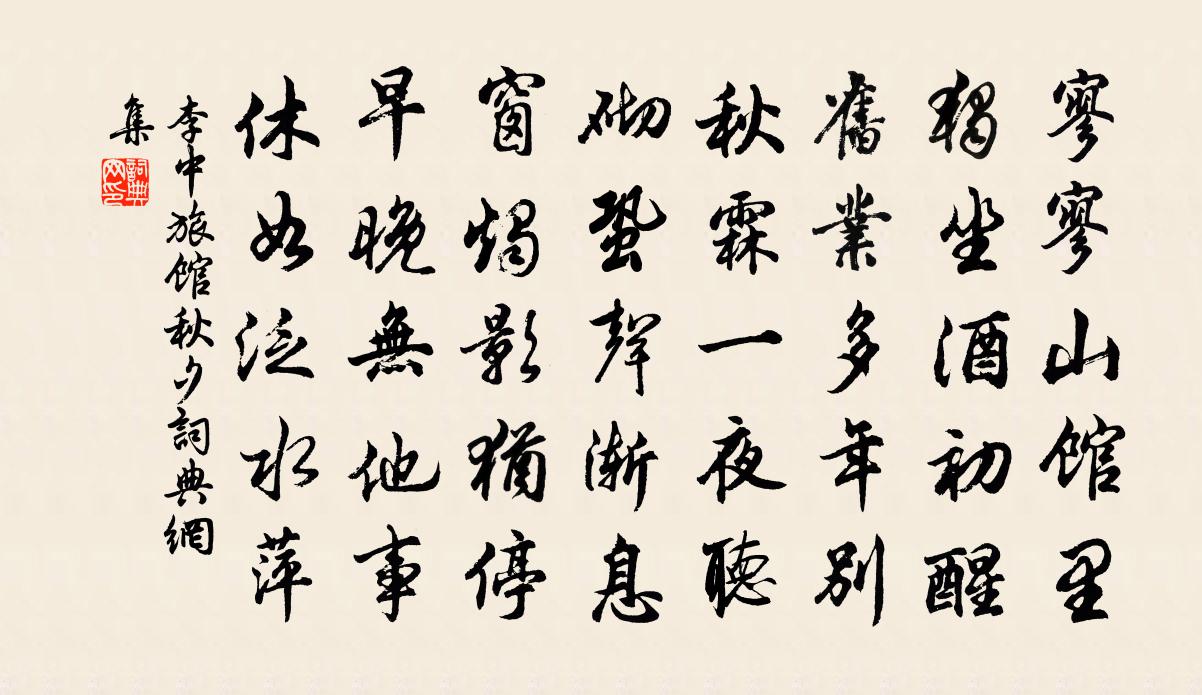 寥寥山館里
獨坐酒初醒
舊業多年別
秋霖一夜聽
砌蛩聲漸息
窗燭影猶停
早晚無他事
休如泛水萍
李中旅館秋夕詞典網
集
詞典網印